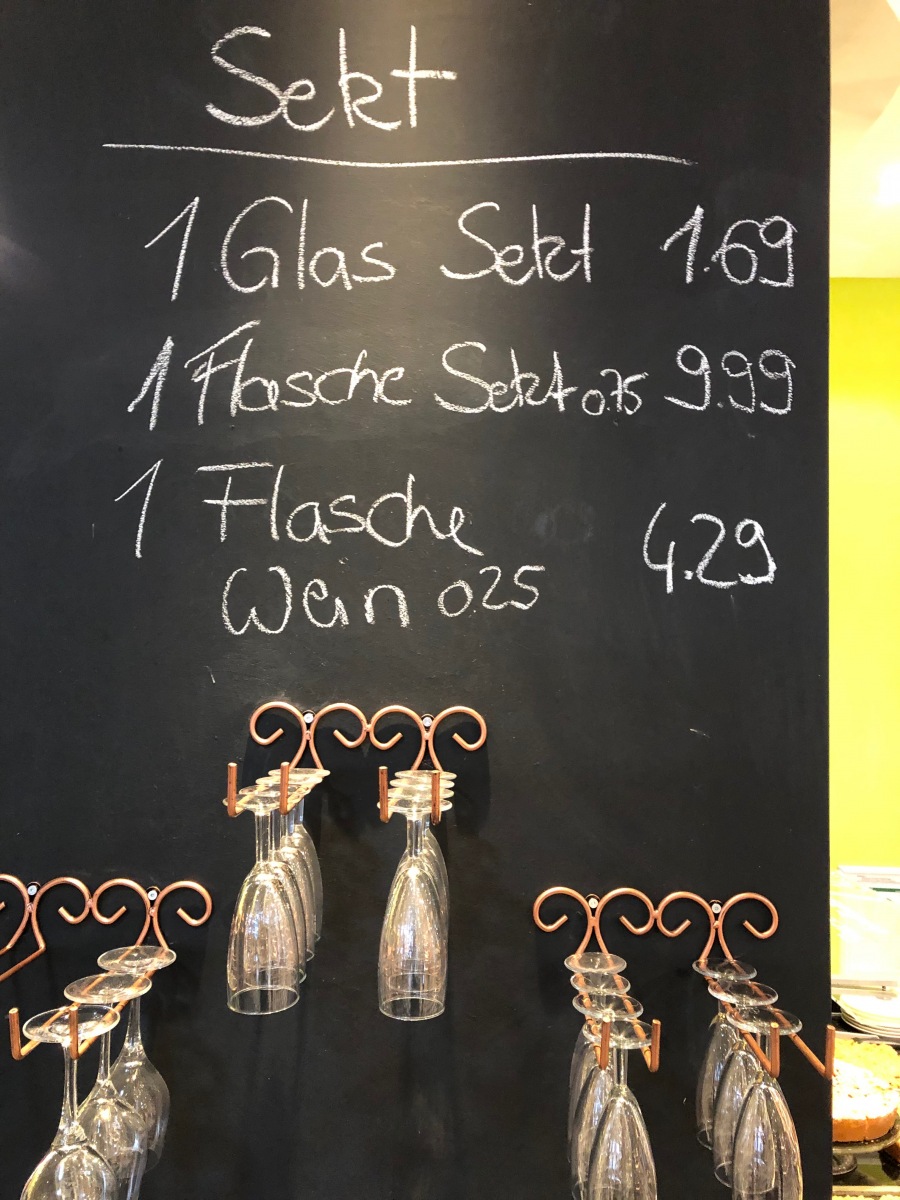 Sekt
1 Glas Sekt 1.69
1 Flasche Sekt 0.75 9.99
1 Flasche
Wein 0.25 4.29